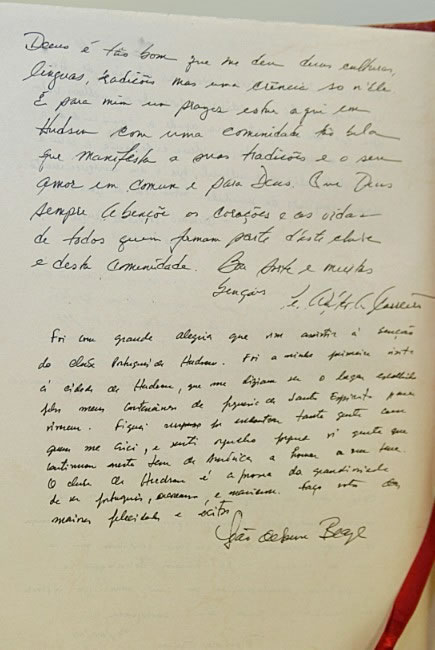 Deeus é tão bom que me deu duas culturas,
línguas, tradições mas uma crência so n'Ele.
E para mim um prazer estar aqui em
Hudson com uma comunidade tão bela
que manifesta a suas tradições e o seu
amor em comun e para Deus. Que Deus
sempre abençõe os corações e as vidas
de todos quem formam parte d'este clube
e desta comunidade. Boa sorte e muitas
bençãos
Foi com grande alegria que vim assistir á benção
do clube Português de Hudson. Foi a minha primeira visita
á cidade de Hudson, que me diziam ser o lugar escolhido
pelos meus conterrâneos da freguesia de Santo Espírito para
viverem. Fiquei encontrar tanta gente com
quem me e senti orgulho porque vi gente que
continuam nesta terra da América a honrar a sua terra.
O clube de Hudson é a prova da grandiosidade
de ser português, e mariense. Faço votos das
maiores felicidades e exitos
João